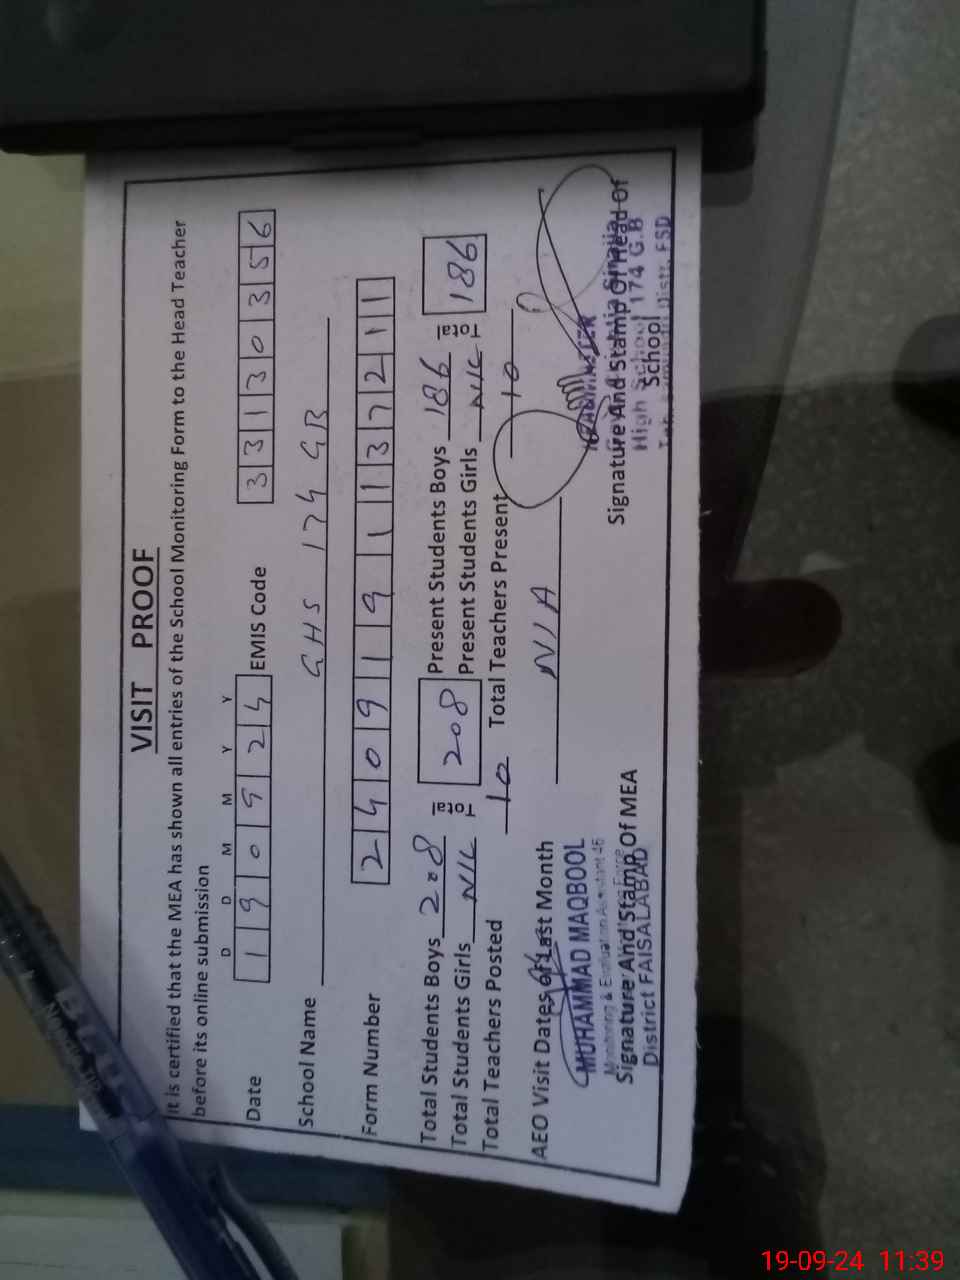 VISIT PROOF
It is certified that the MEA has shown all entries of the School Monitoring Form to the Head Teacher
before its online submission
D D M M Y Y
Date 190924 EMIS Code 33130356
School Name GHS 174 GB
Form Number 2409191137211
Total Students Boys 208 Total 208 Present Students Boys 186 Total 186
Total Students Girls NIL Present Students Girls NIL
Total Teachers Posted 10 Total Teachers Present 10
AEO Visit Dates of Last Month N/A
MUHAMMAD MAQBOOL
Monitoring & Evaluation Assistant 46
Signature And Stamp Of MEA
District FAISALABAD
Signature And Stamp Of Head Of
School
High School 174 G.B
Distt. FSD
19-09-24 11:39